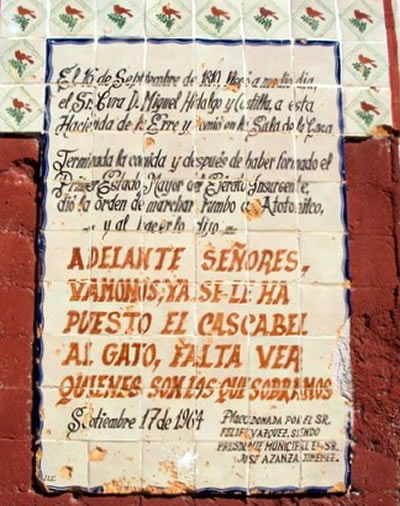 El 16 de Septiembre de 1810, llegó a medio día,
el Sr. Cura D. Miguel Hidalgo y Costilla, a esta
Hacienda de la Erre y comió en la Sala de la Casa.
Terminada la comida y después de haber formado el
Primer Estado Mayor del Ejército Insurgente,
dió la orden de marchar rumbo a Atotonilco,
y al hacerlo dijo
ADELANTE SEÑORES,
VAMONOS; YA SE LE HA
PUESTO EL CASCABEL
AL GATO, FALTA VER
QUIENES SON LOS QUE SOBRAMOS
Septiembre 17 de 1964
PLACA DONADA POR EL SR.
FELIPE VAZQUEZ, SIENDO
PRESIDENTE MUNICIPAL EL SR.
JOSE AZANZA JIMENEZ.